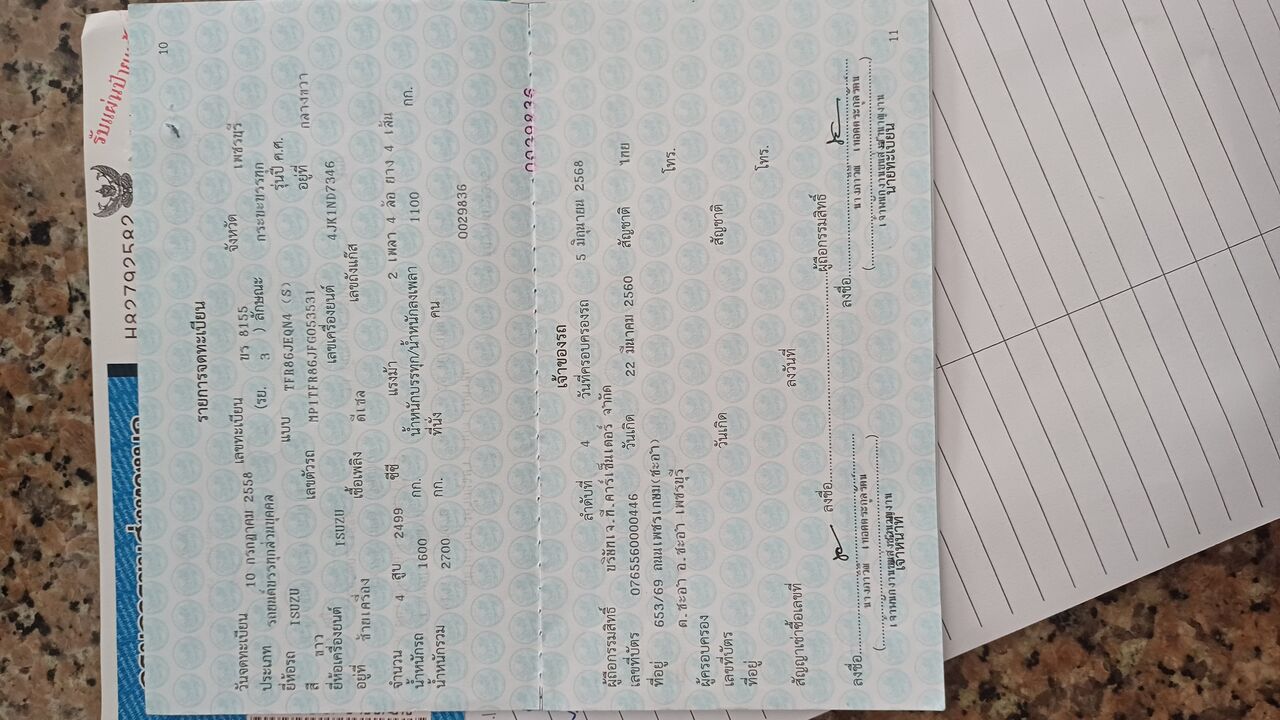 รับแผ่นป้ายแล้ว
H82792582
10
รายการจดทะเบียน
วันจดทะเบียน 10 กรกฎาคม 2558 เลขทะเบียน 8155 จังหวัด เพชรบุรี
ประเภท รถยนต์บรรทุกส่วนบุคคล (รย. 3 ) ลักษณะ กระบะบรรทุก
ยี่ห้อรถ ISUZU แบบ TFR86JEQN4 (S) รุ่นปี ค.ศ.
สี ขาว เลขตัวรถ MP1TFR86JFG053531 อยู่ที่ กลางขวา
ยี่ห้อเครื่องยนต์ ISUZU เลขเครื่องยนต์ 4JK1ND7346
อยู่ที่ ซ้ายเครื่อง เชื้อเพลิง ดีเซล เลขถังแก๊ส
จำนวน 4 สูบ 2499 ซีซี แรงม้า 2 เพลา 4 ล้อ ยาง 4 เส้น
น้ำหนักรถ 1600 กก. น้ำหนักบรรทุก/น้ำหนักลงเพลา 1100 กก.
น้ำหนักรวม 2700 กก. ที่นั่ง คน
0029836
0029836
เจ้าของรถ
ลำดับที่ 4 วันที่ครอบครองรถ 5 มิถุนายน 2568
ผู้ถือกรรมสิทธิ์ บริษัทเจ.ที.คาร์เซ็นเตอร์ จำกัด
เลขที่บัตร 0765560000446 วันเกิด 22 มีนาคม 2560 สัญชาติ ไทย
ที่อยู่ 653/69 ถนนเพชรเกษม(ชะอำ) โทร.
ต.ชะอำ อ.ชะอำ เพชรบุรี
ผู้ครอบครอง
เลขที่บัตร วันเกิด สัญชาติ
ที่อยู่ โทร.
สัญญาเช่าซื้อเลขที่ ลงวันที่
ลงชื่อ ผู้ถือกรรมสิทธิ์
ลงชื่อ ลงชื่อ
เจ้าหน้าที่ นายทะเบียน
11